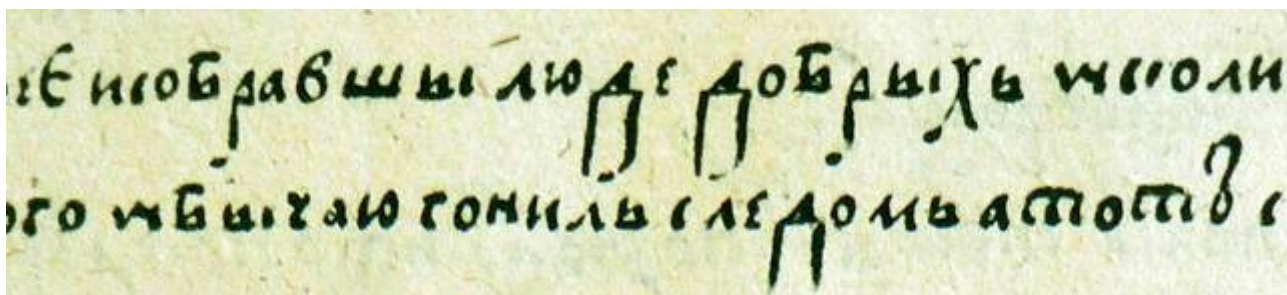 и собравшы люде добрыхъ ѡколи
ого ѡбычаю гонилъ следомъ а тотъ